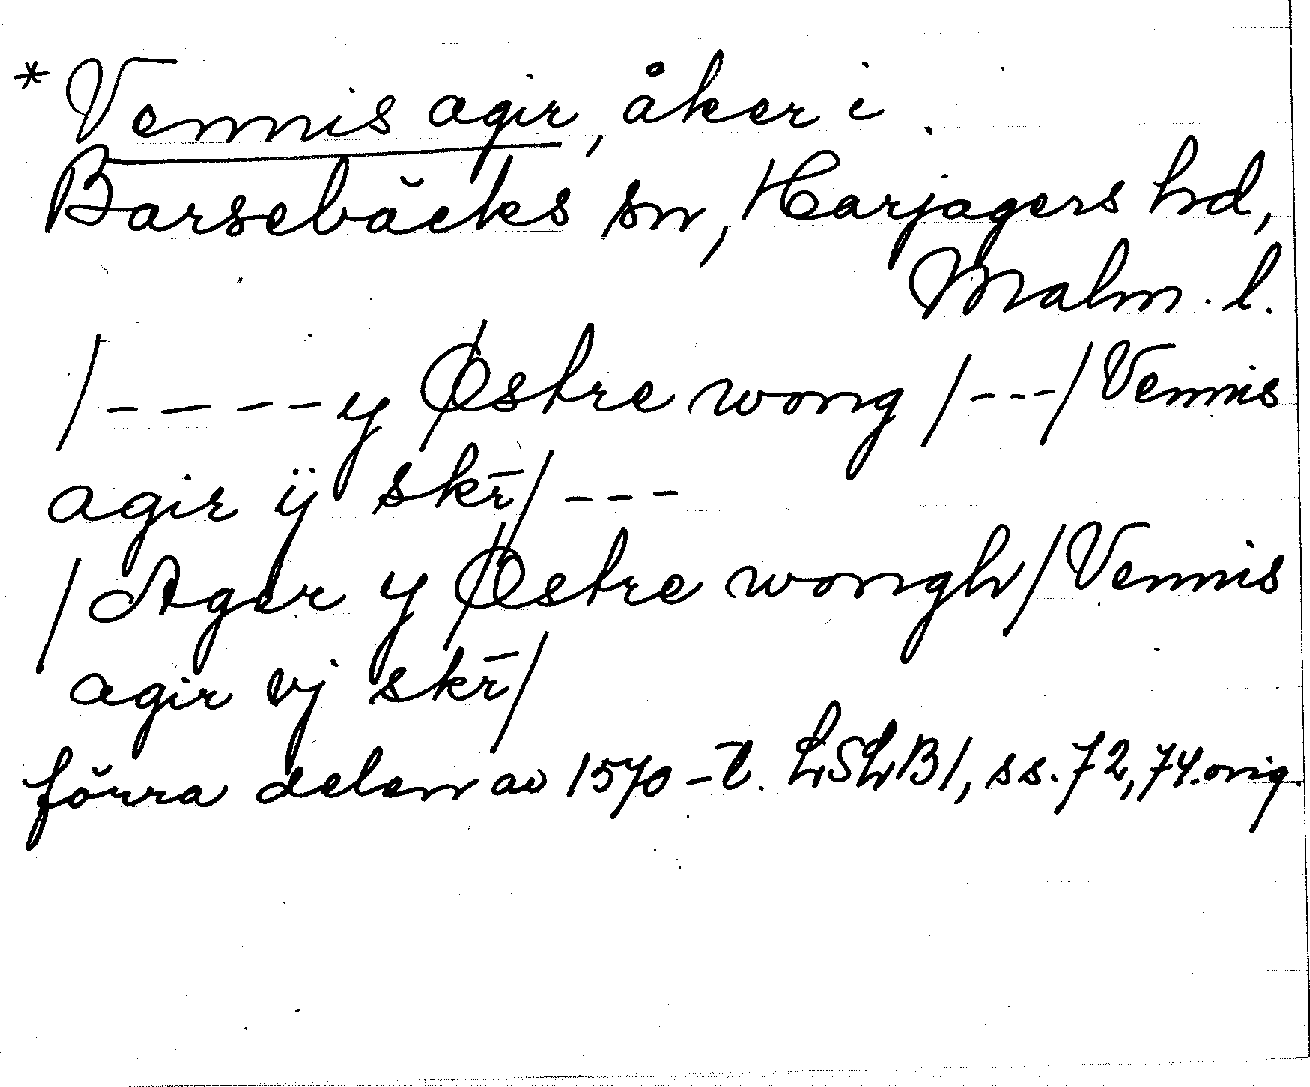 * Vennis agir, åker i
Barsebäcks sn, Harjagers hd,
Malm. l.
/----y Østre wong /---/ Vennis
agir ÿ skr̄/---
/Ager y Østre wongh/ Vennis
agir vj skr̄/
förra delen av 1570-t. LSLB1, ss. 72, 74. orig.